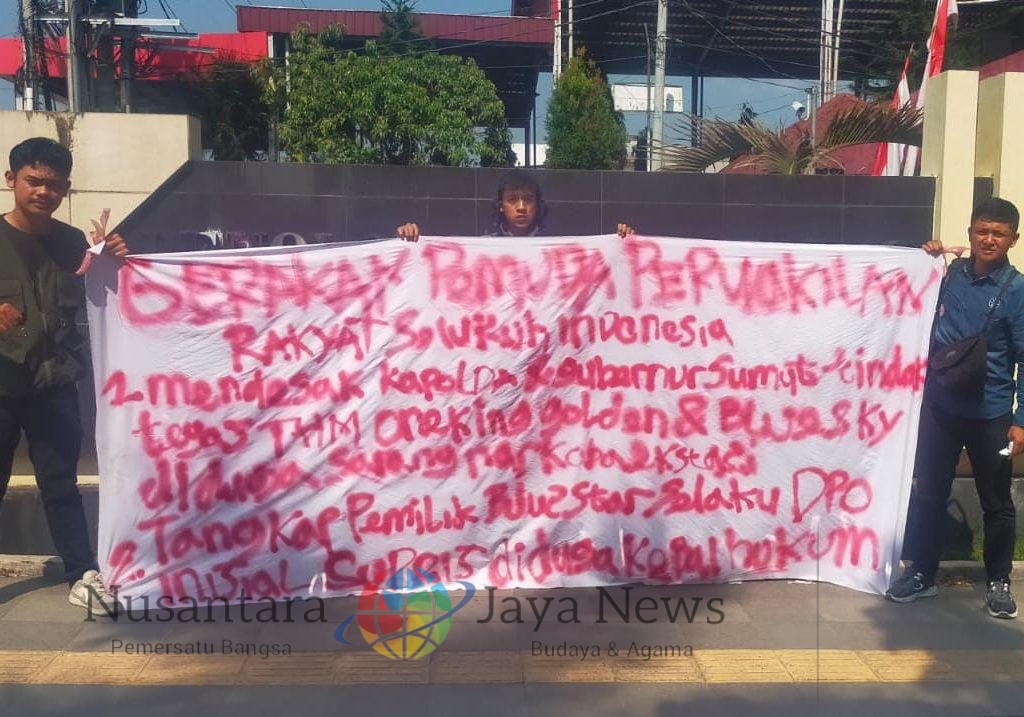 GERAKAK PEMUDA PERWAKILAN
RAKYAT SELURUH INDONESIA
1. mendesak KAPOLDA & Gubernur Sumut tindak
tegas THM oneking golden & BlueSky
di duga sarang narkoba ekstaci
2. Tangkap Pemilik Blue Star Selaku DPO
INISIAL diduga Kebal hukum
Nusantara Jaya News
Pemersatu Bangsa Budaya & Agama